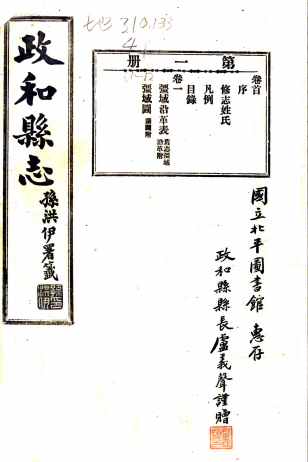 七也 310.133
4
(1-12)
政和縣志
孫洪伊署籤
第一册
卷首
序
修志姓氏
凡例
目錄
卷一
彊域沿革表 舊志彊域沿革附
彊域圖 諸圖附
國立北平圖書館 惠存
政和縣縣長盧義聲謹贈